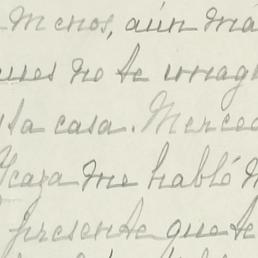 menos, aún má
ues no te imag
sta casa. Merced
Ycaza me habló m
presente que te